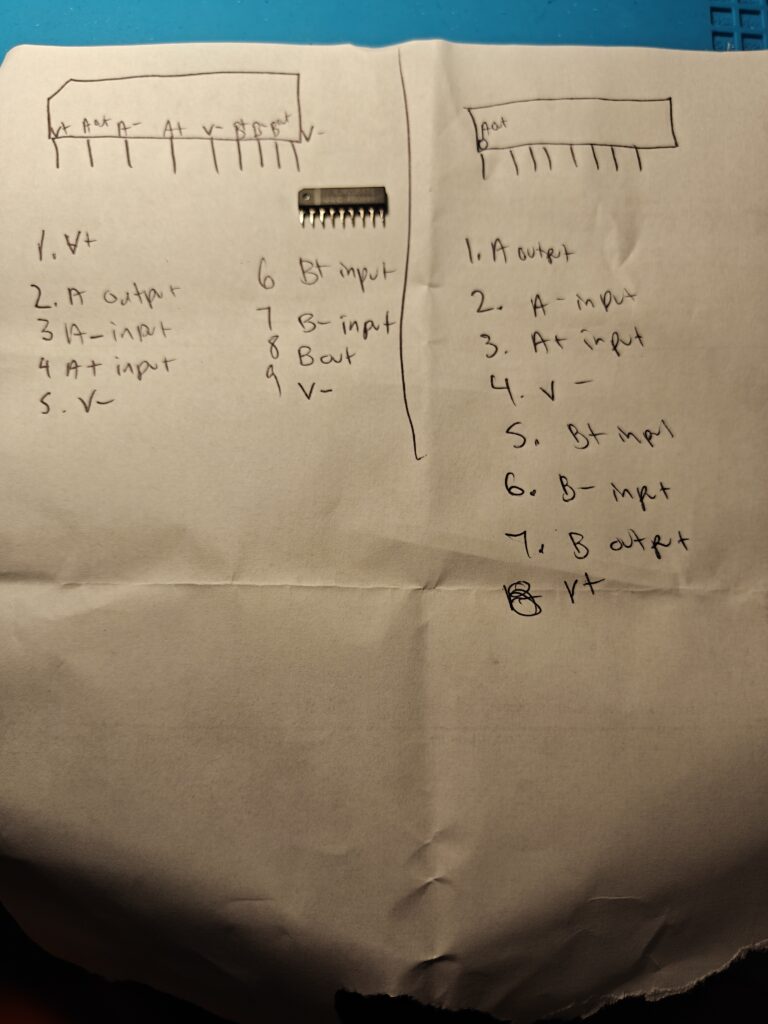 V+ A out A- A+ V- B+ B- Bout V-
1. V+
2. A output
3 A- input
4 A+ input
5. V-
6 B+ input
7 B- input
8 B out
9 V-
A out
1. A output
2. A- input
3. A+ input
4. V -
5. B+ input
6. B- input
7. B output
8 V+